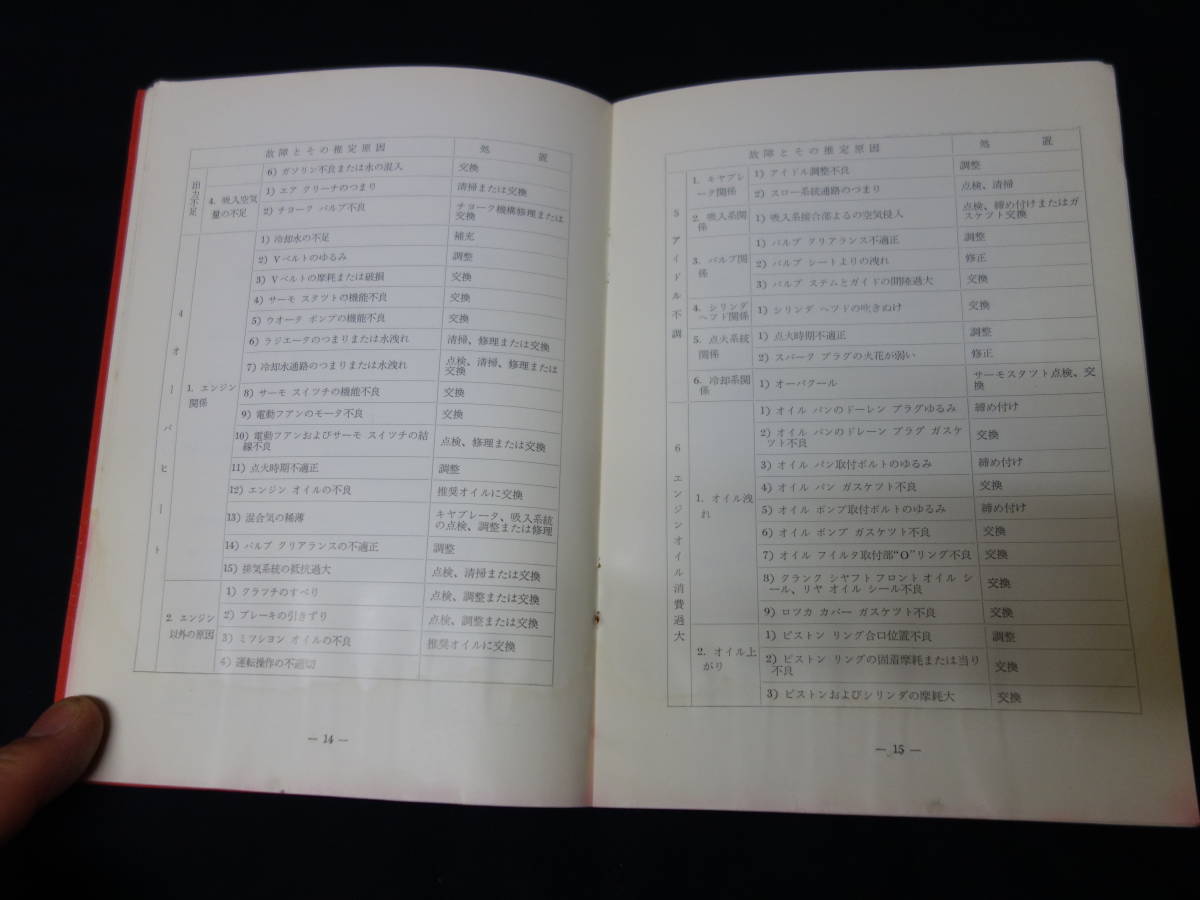 故障とその推定原因 処置
出力不足
6) ガソリン不良または水の混入 交換
4. 吸入空気
量の不足
1) エア クリーナのつまり 清掃または交換
2) チヨーク バルブ不良 チヨーク機構修理または
交換
4 オーバヒート
1. エンジン
関係
1) 冷却水の不足 補充
2) Vベルトのゆるみ 調整
3) Vベルトの摩耗または破損 交換
4) サーモ スタツトの機能不良 交換
5) ウオータ ポンプの機能不良 交換
6) ラジエータのつまりまたは水洩れ 清掃、修理または交換
7) 冷却水通路のつまりまたは水洩れ 点検、清掃、修理または
交換
8) サーモ スイツチの機能不良 交換
9) 電動フアンのモータ不良 交換
10) 電動フアンおよびサーモ スイツチの結
線不良 点検、修理または交換
11) 点火時期不適正 調整
12) エンジン オイルの不良 推奨オイルに交換
13) 混合気の稀薄 キヤブレータ、吸入系統
の点検、調整または修理
14) バルブ クリアランスの不適正 調整
15) 排気系統の抵抗過大 点検、清掃または交換
2. エンジン
以外の原因
1) クラツチのすべり 点検、調整または交換
2) ブレーキの引きずり 点検、調整または交換
3) ミツシヨン オイルの不良 推奨オイルに交換
4) 運転操作の不適切
— 14 —
故障とその推定原因 処置
5 アイドル不調
1. キヤブレ
ータ関係
1) アイドル調整不良 調整
2) スロー系統通路のつまり 点検、清掃
2. 吸入系関
係
1) 吸入系接合部よるの空気侵入 点検、締め付けまたはガ
スケツト交換
3. バルブ関
係
1) バルブ クリアランス不適正 調整
2) バルブ シートよりの洩れ 修正
3) バルブ ステムとガイドの間隙過大 交換
4. シリンダ
ヘツド関係
1) シリンダ ヘツドの吹きぬけ 交換
5. 点火系統
関係
1) 点火時期不適正 調整
2) スパーク プラグの火花が弱い 修正
6. 冷却系関
係
1) オーバクール サーモスタツト点検、交
換
6 エンジンオイル消費過大
1. オイル洩
れ
1) オイル パンのドーレン プラグゆるみ 締め付け
2) オイル パンのドレーン プラグ ガスケ
ツト不良 交換
3) オイル パン取付ボルトのゆるみ 締め付け
4) オイル パン ガスケツト不良 交換
5) オイル ポンプ取付ボルトのゆるみ 締め付け
6) オイル ポンプ ガスケツト不良 交換
7) オイル フイルタ取付部“O”リング不良 交換
8) クランク シヤフト フロント オイル シ
ール、リヤ オイル シール不良 交換
9) ロツカ カバー ガスケツト不良 交換
2. オイル上
がり
1) ピストン リング合口位置不良 調整
2) ピストン リングの固着摩耗または当り
不良 交換
3) ピストンおよびシリンダの摩耗大 交換
— 15 —